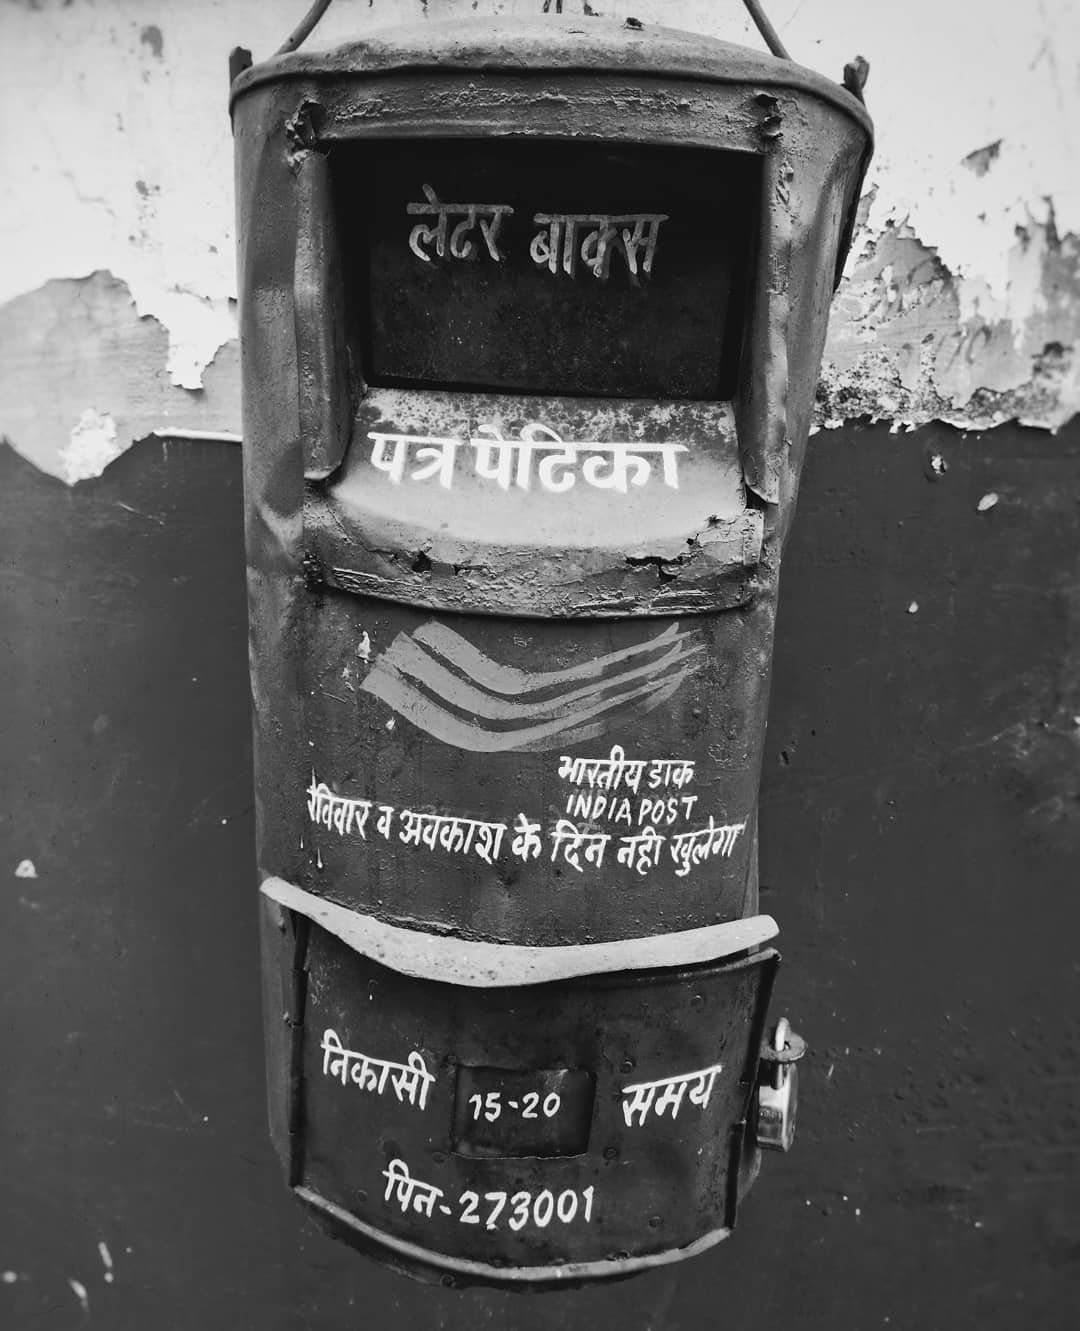 लेटर बाक्स
पत्र पेटिका
भारतीय डाक
INDIA POST
रविवार व अवकाश के दिन नही खुलेगा
निकासी 15-20 समय
पिन-273001